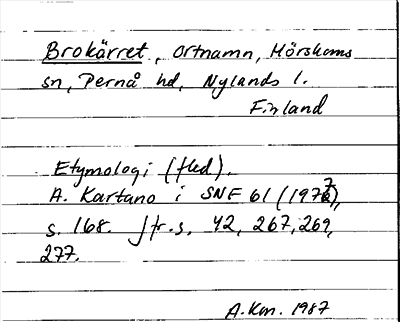 Brokärret, ortnamn, Mörskoms
sn, Pernå hd, Nylands l.
Finland
Etymologi (fled).
A. Kartano i SNF 61 (1977),
s. 168. Jfr. s. 42, 267, 269,
277.
A.Km. 1987